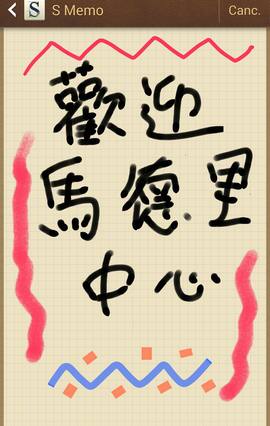 S S Memo Canc.
歡迎
馬德里
中心